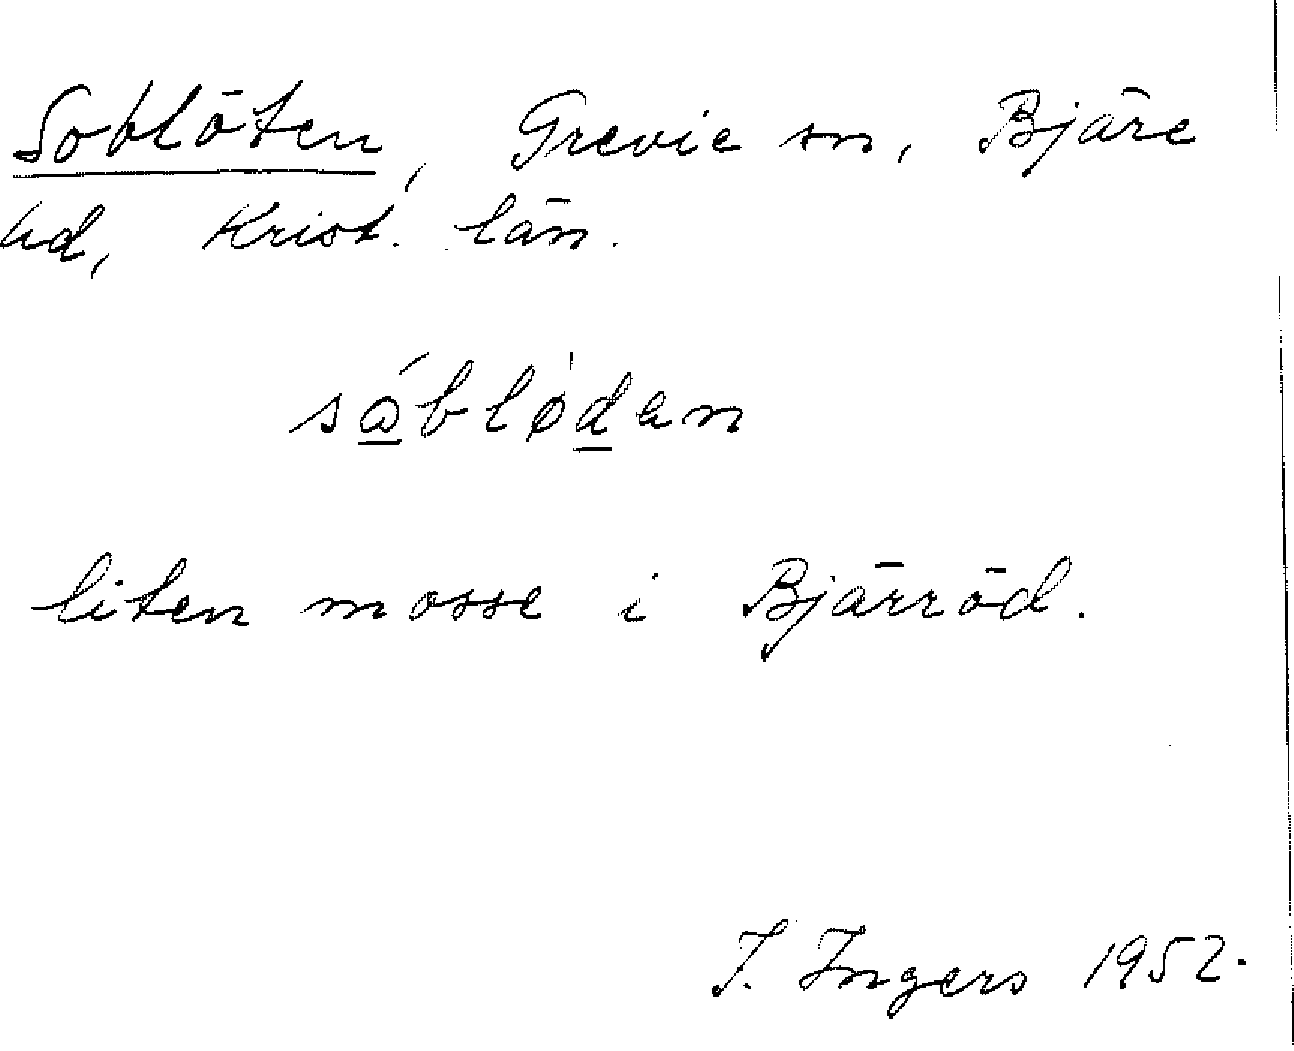 Soblöten, Grevie sn, Bjäre
hd, Krist. län.
sóblø̍dan
liten mosse i Bjärröd.
I. Ingers 1952.